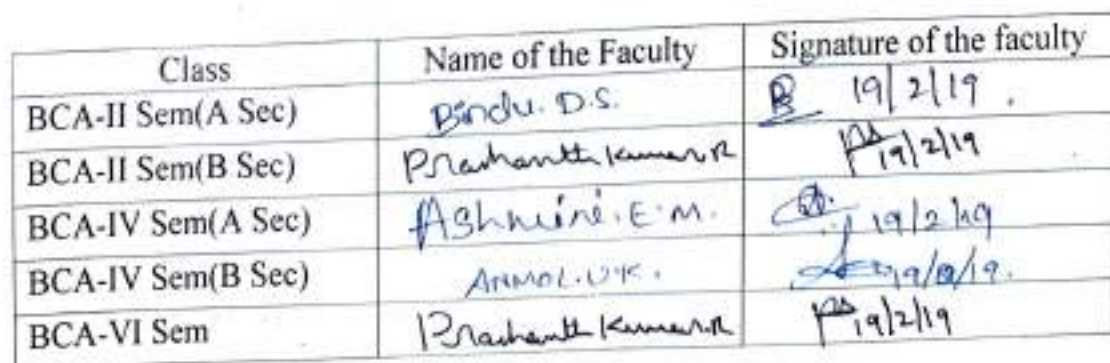 Class Name of the Faculty Signature of the faculty
BCA-II Sem(A Sec) Bindu. D.S. 19/2/19
BCA-II Sem(B Sec) Prashanth Kumar.R 19/2/19
BCA-IV Sem(A Sec) Ashwini.E.M. 19/2/19
BCA-IV Sem(B Sec) ANMOL.U.K. 19/2/19.
BCA-VI Sem Prashanth Kumar.R 19/2/19